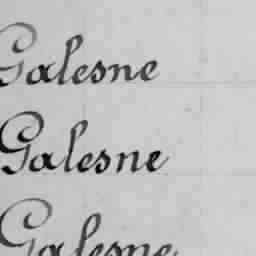 Galesne
Galesne
Galesne